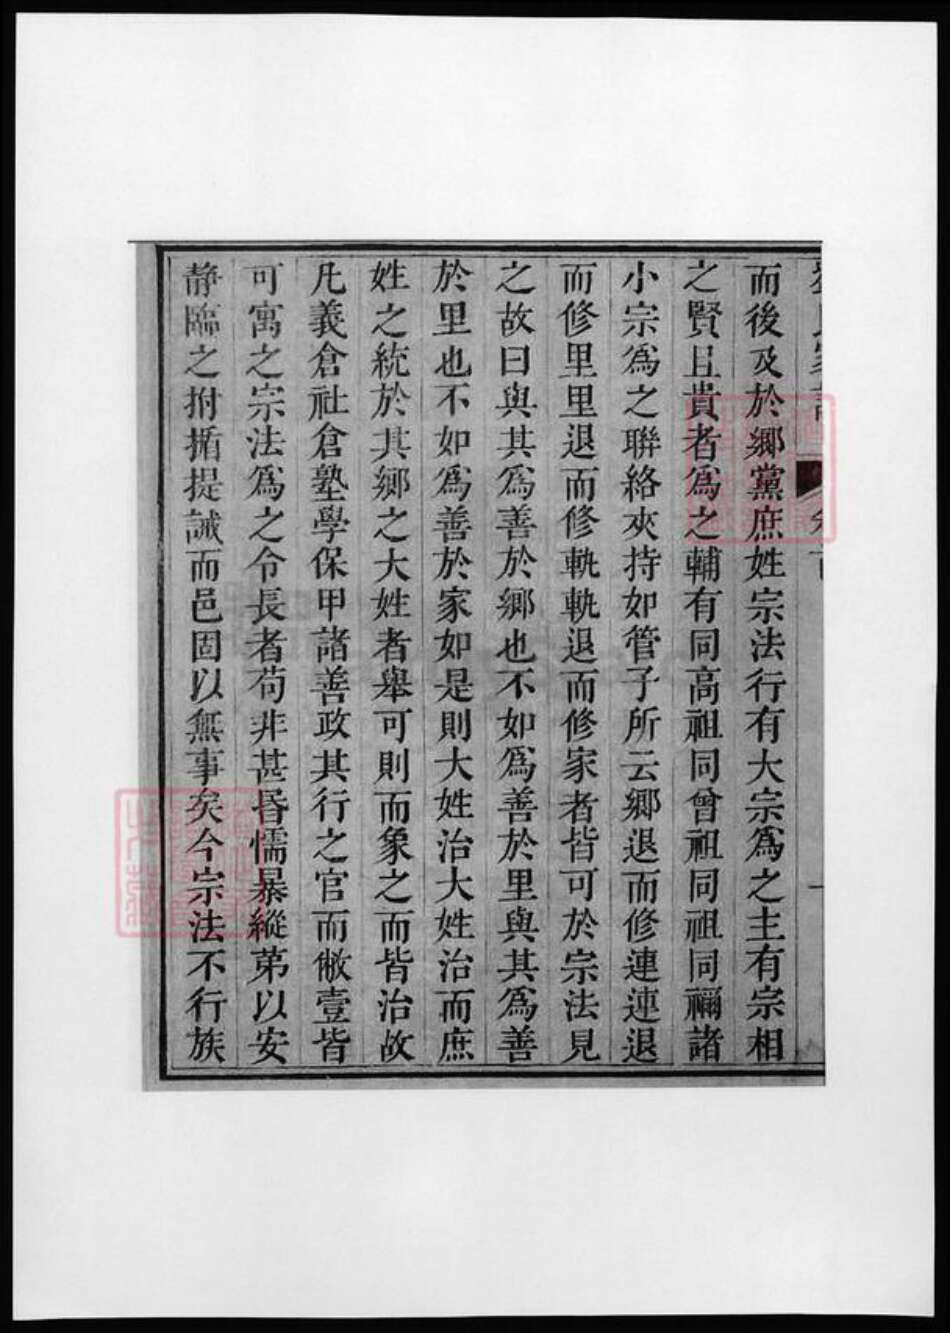 而後及於鄉黨庶姓宗法行有大宗爲之主有宗相
之賢且貴者爲之輔有同高祖同曾祖同祖同禰諸
小宗爲之聯絡夾持如管子所云鄉退而修連連退
而修里里退而修軌軌退而修家者皆可於宗法見
之故曰與其爲善於鄉也不如爲善於里與其爲善
於里也不如爲善於家如是則大姓治大姓治而庶
姓之統於其鄉之大姓者舉可則而象之而皆治故
凡義倉社倉塾學保甲諸善政其行之官而敝壹皆
可寓之宗法爲之令長者苟非甚昏懦暴縱第以安
靜臨之拊揗提誡而邑固以無事矣今宗法不行族